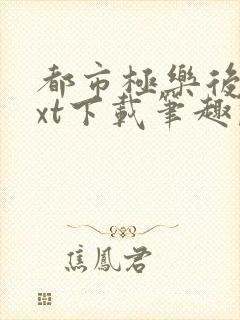 都市極樂後
xt下載筆趣
焦鳳君